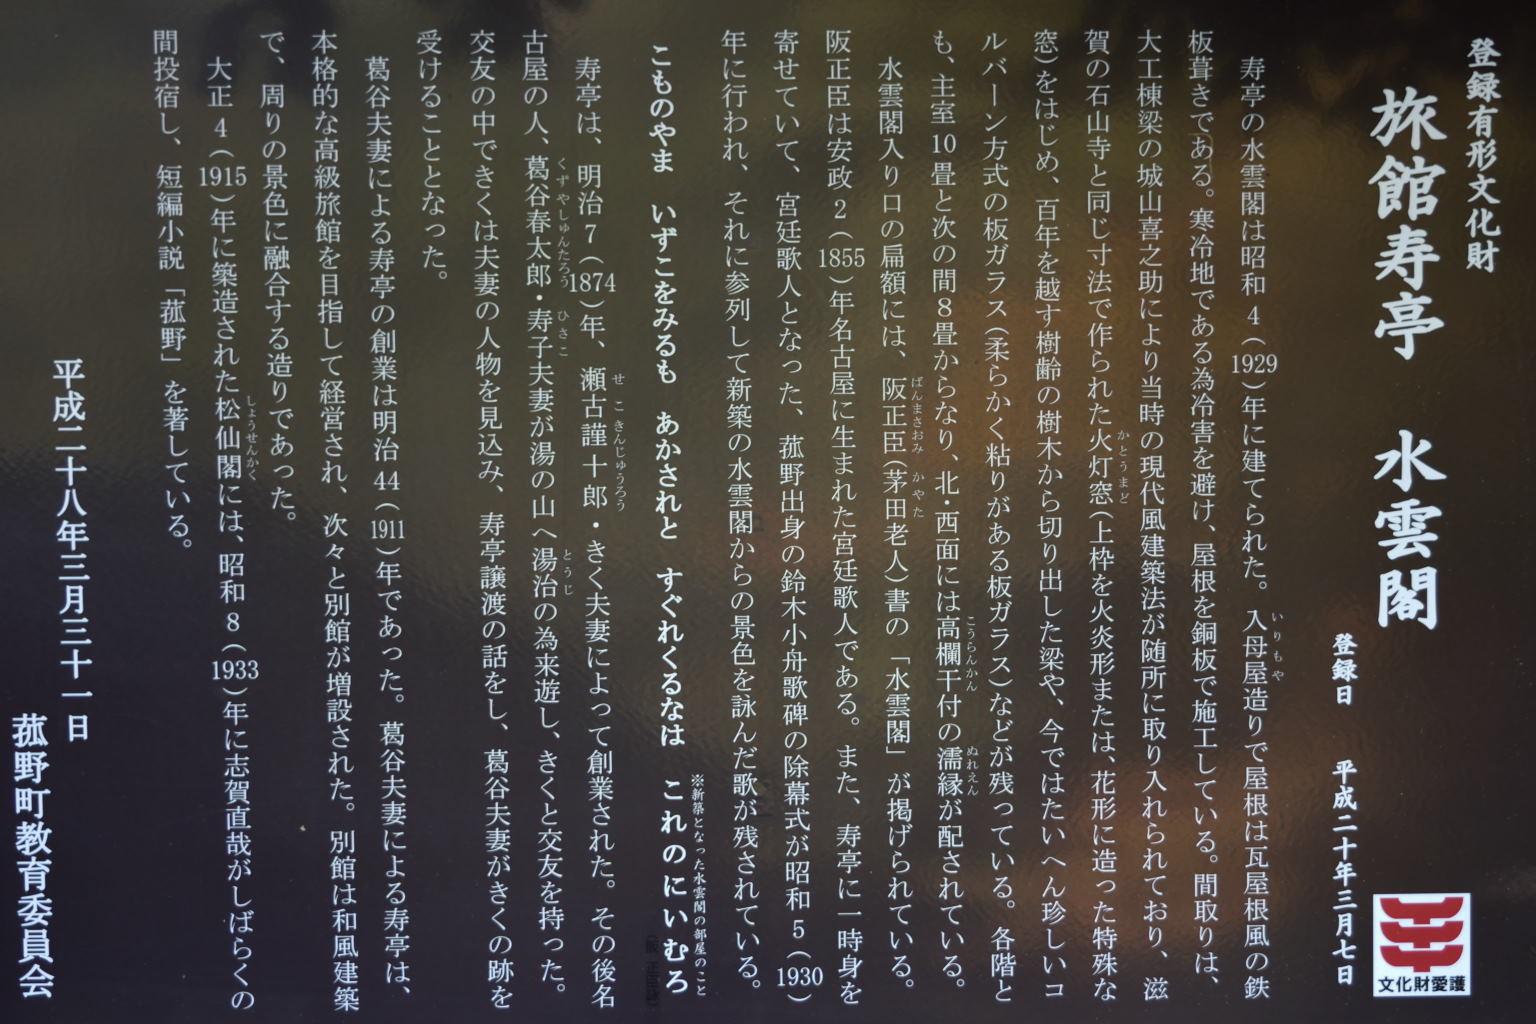 登録有形文化財
旅館寿亭 水雲閣
登録日 平成二十年三月七日
文化財愛護
寿亭の水雲閣は昭和4(1929)年に建てられた。入母屋造りで屋根は瓦屋根風の鉄
いりもや
板葺きである。寒冷地である為冷害を避け、屋根を銅板で施工している。間取りは、
大工棟梁の城山喜之助により当時の現代風建築法が随所に取り入れられており、滋
賀の石山寺と同じ寸法で作られた火灯窓(上枠を火炎形または、花形に造った特殊な
かとうまど
窓)をはじめ、百年を越す樹齢の樹木から切り出した梁や、今ではたいへん珍しいコ
ルバーン方式の板ガラス(柔らかく粘りがある板ガラス)などが残っている。各階と
も、主室10畳と次の間8畳からなり、北・西面には高欄干付の濡縁が配されている。
こうらんかん ぬれえん
水雲閣入り口の扁額には、阪正臣(茅田老人)書の「水雲閣」が掲げられている。
ばんまさおみ かやた
阪正臣は安政2(1855)年名古屋に生まれた宮廷歌人である。また、寿亭に一時身を
寄せていて、宮廷歌人となった、菰野出身の鈴木小舟歌碑の除幕式が昭和5(1930)
年に行われ、それに参列して新築の水雲閣からの景色を詠んだ歌が残されている。
※新築となった水雲閣の部屋のこと
こものやま いずこをみるも あかされと すぐれくるなは これのにいむろ
寿亭は、明治7(1874)年、瀬古謹十郎・きく夫妻によって創業された。その後名
せこきんじゅうろう
古屋の人、葛谷春太郎・寿子夫妻が湯の山へ湯治の為来遊し、きくと交友を持った。
くずやしゅんたろう ひさこ とうじ
交友の中できくは夫妻の人物を見込み、寿亭譲渡の話をし、葛谷夫妻がきくの跡を
受けることとなった。
葛谷夫妻による寿亭の創業は明治44(1911)年であった。葛谷夫妻による寿亭は、
本格的な高級旅館を目指して経営され、次々と別館が増設された。別館は和風建築
で、周りの景色に融合する造りであった。
大正4(1915)年に築造された松仙閣には、昭和8(1933)年に志賀直哉がしばらくの
しょうせんかく
間投宿し、短編小説「菰野」を著している。
平成二十八年三月三十一日
菰野町教育委員会